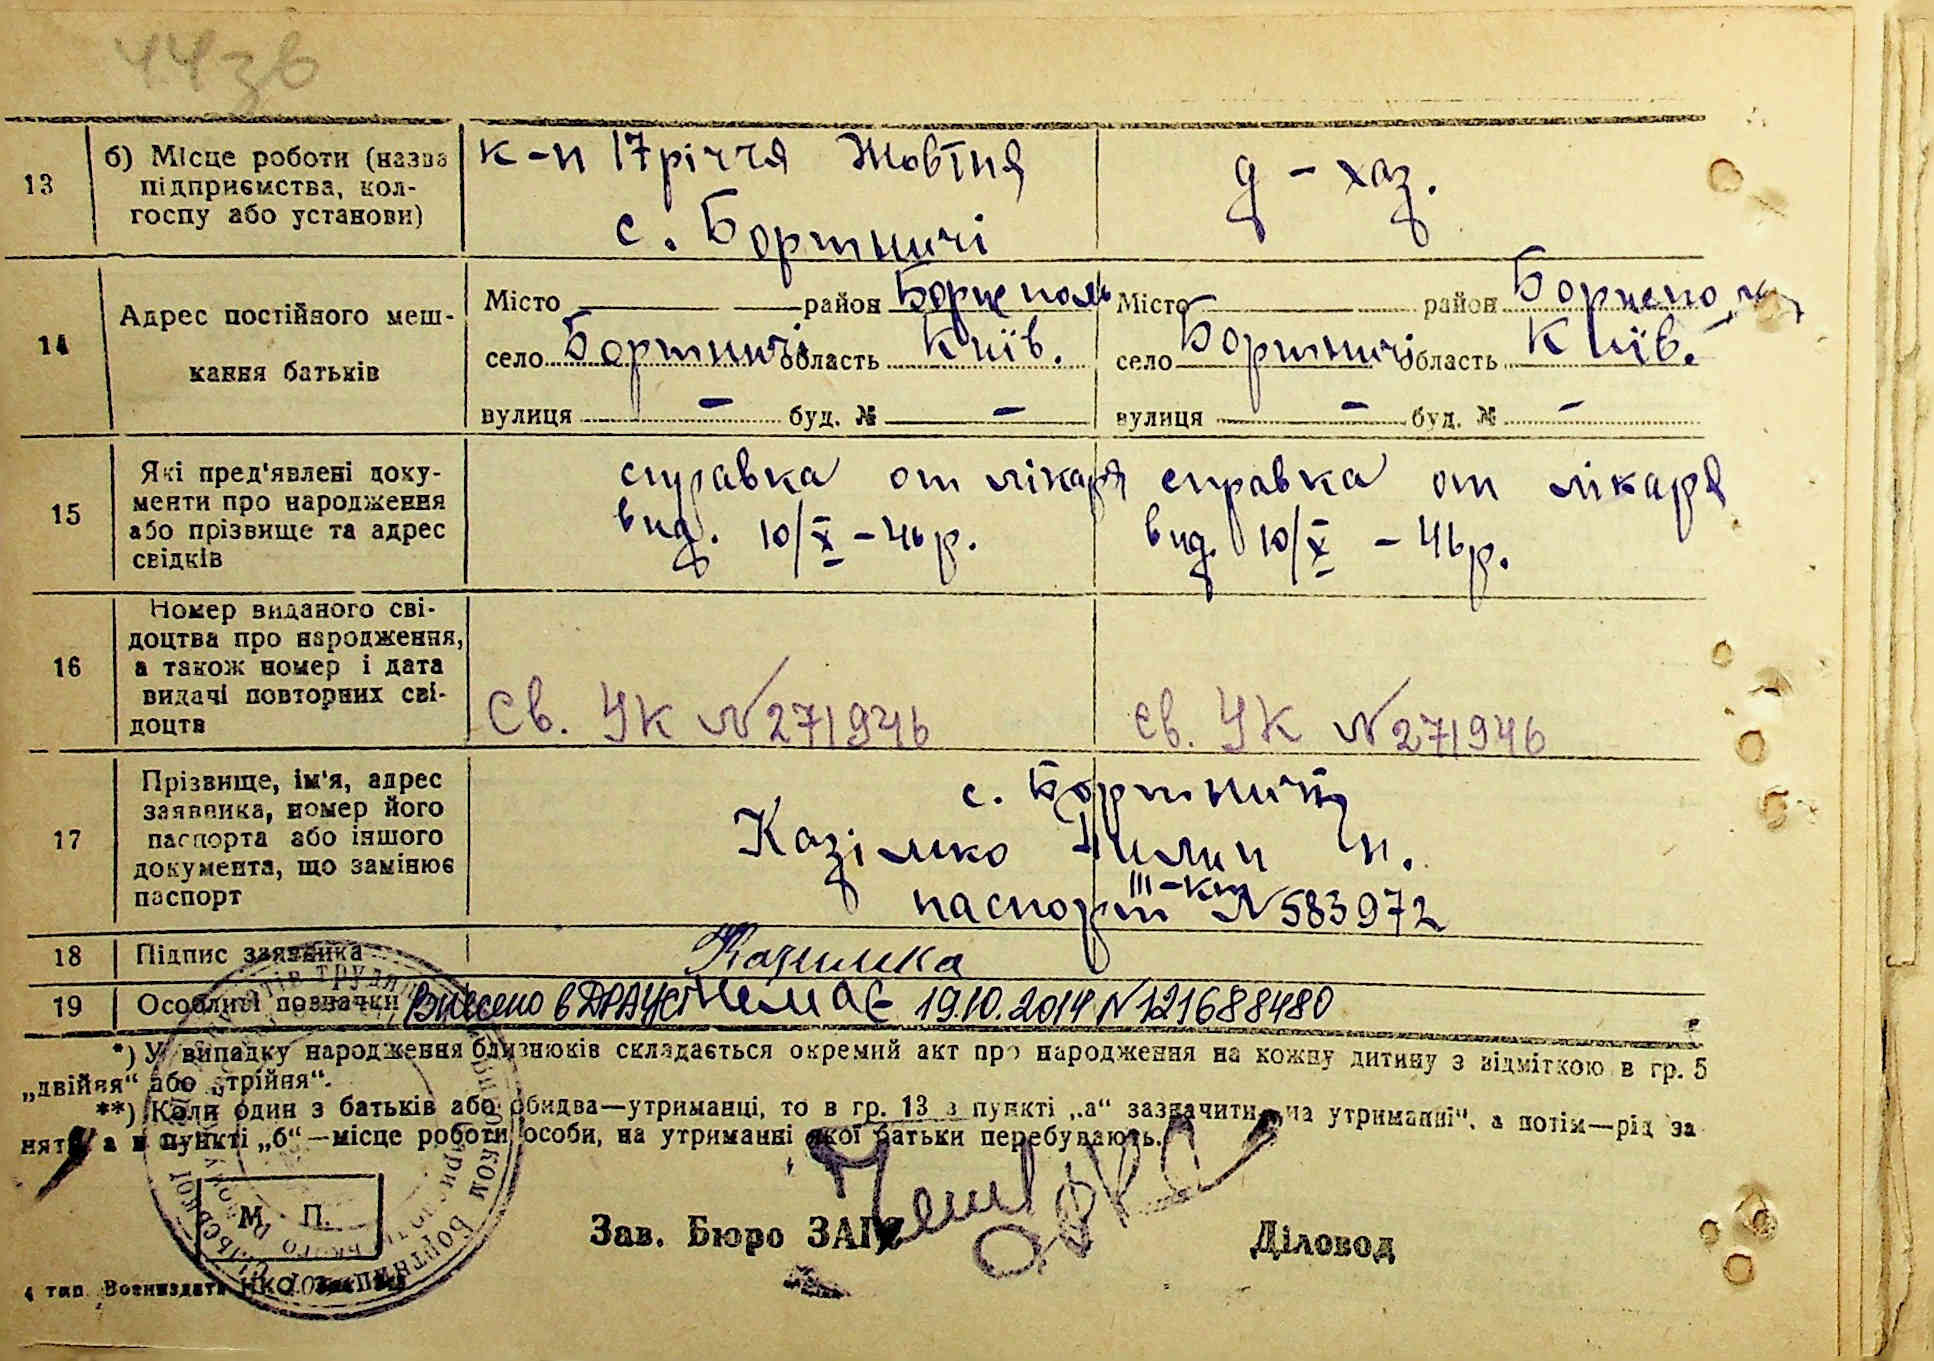 44зв
13
б) Місце роботи (назва
підприємства, кол-
госпу або установи)
к-п 17 річчя Жовтня
с. Бортничі
д - хаз.
14
Адрес постійного меш-
кання батьків
Місто район Борисполь
село Бортничі область Київ.
вулиця - буд. № -
Місто район
село Бортничі область Київ.
вулиця - буд. № -
15
Які пред'явлені доку-
менти про народження
або прізвище та адрес
свідків
справка от лікаря
вид. 10/X - 46 р.
справка от лікаря
вид. 10/X - 46 р.
16
Номер виданого сві-
доцтва про народження,
а також номер і дата
видачі повторних сві-
доцтв
Св. УК № 271946
св. УК № 271946
17
Прізвище, ім'я, адрес
заявника, номер його
паспорта або іншого
документа, що замінює
паспорт
с. Бортничі
Казімко
паспорт № 583972
18
Підпис заявника
19
Особливі позначки
Внесено в ДРАЦС 19.10.2014 №121688480
немає
*) У випадку народження близнюків складається окремий акт про народження на кожну дитину з відміткою в гр. 5
„двійня“ або „трійня“.
**) Коли один з батьків або обидва—утриманці, то в гр. 13 в пункті „а“ зазначити „на утриманні“, а потім—рід за
няття, а в пункті „б“—місце роботи особи, на утриманні якої батьки перебувають.
М. П.
Зав. Бюро ЗАГС
Діловод
4 тип. Воениздата НКО